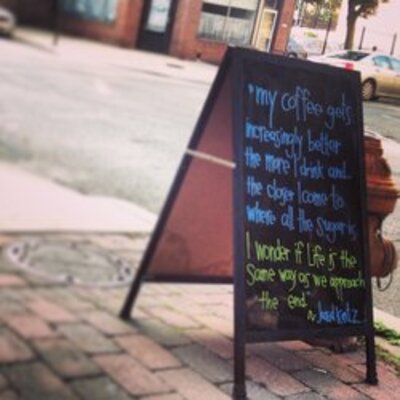 "my coffee gets
increasingly better
the more I drink and...
the closer I come to
where all the sugar is.
I wonder if Life is the
Same way as we approach
the end."